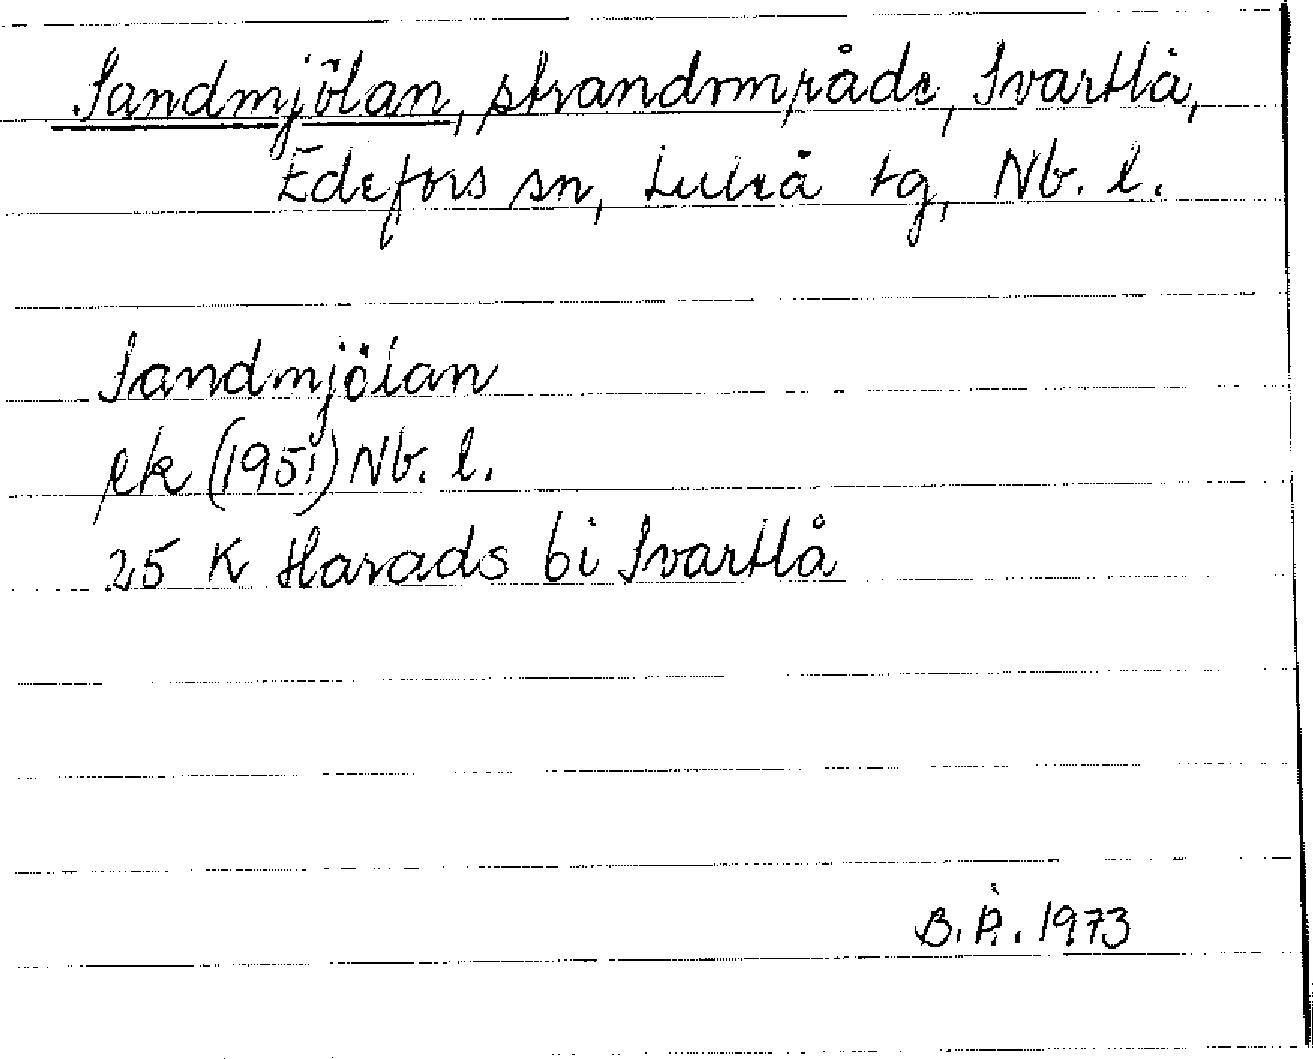 Sandmjölan, strandområde, Svartlå,
Edefors sn, Luleå tg, Nb. l.
Sandmjölan
ek (1951) Nb. l.
25 K Harads bi Svartlå
B. Å. 1973